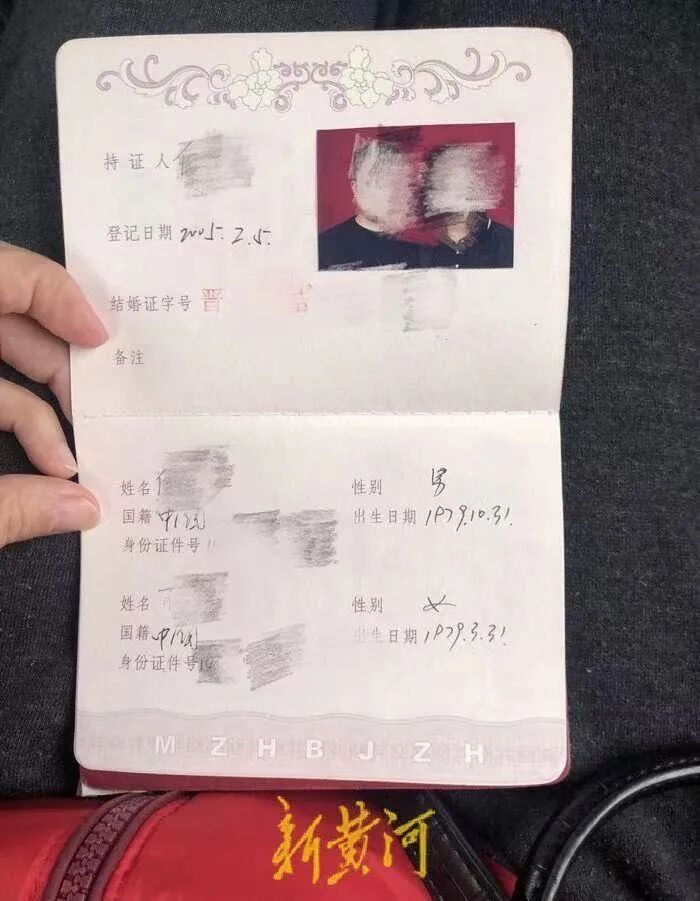 持证人
登记日期 2005.2.5.
结婚证字号 晋
备注
姓名 性别 男
国籍 中国 出生日期 1979.10.31.
身份证件号 1
姓名 性别 女
国籍 中国 出生日期 1979.3.31.
身份证件号 1
MZHBJZH
新黄河